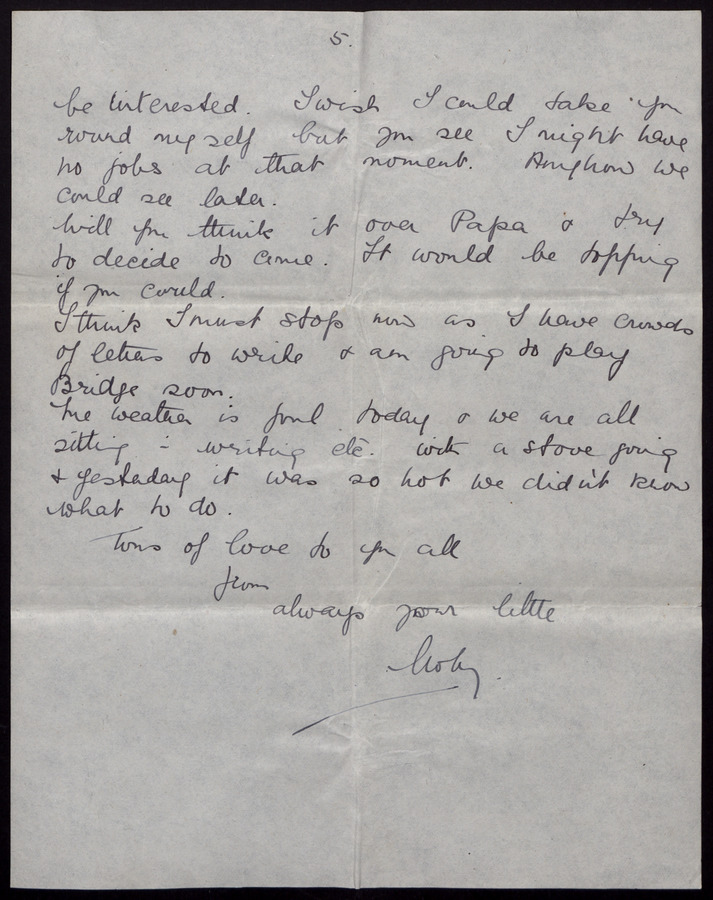 5.
be interested. I wish I could take you
round myself but you see I might have
no jobs at that moment. Anyhow we
could see later.
Will you think it over Papa & try
to decide to come. It would be topping
if you could.
I think I must stop now as I have crowds
of letters to write & am going to play
Bridge soon.
The weather is foul today & we are all
sitting - writing etc. with a stove going
& yesterday it was so hot we didn't know
what to do.
Tons of love to you all
from
always your little